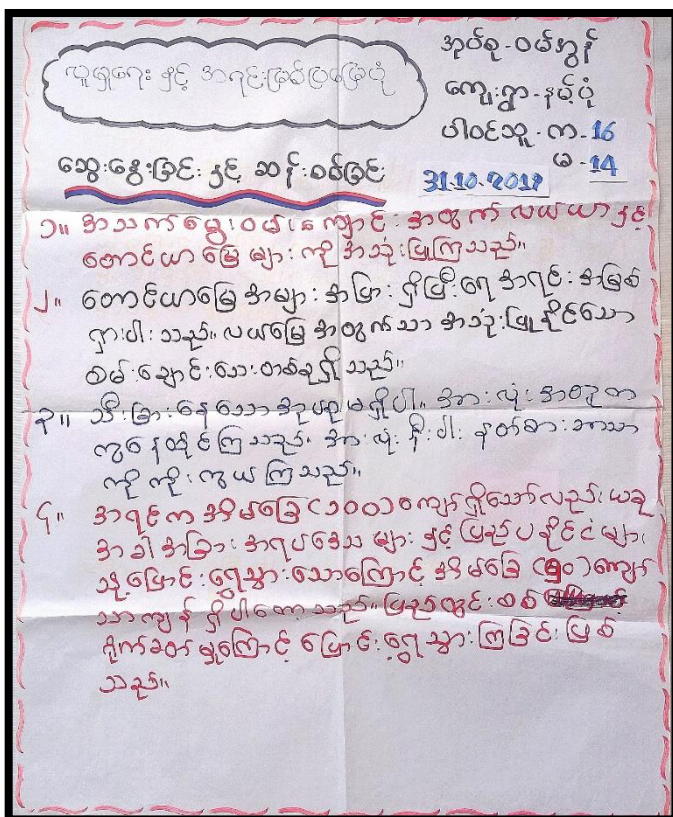 လူမှုရေး နှင့် အရင်းအမြစ်ပြမြေပုံ
အုပ်စု - ဝမ်အွန်
ကျေးရွာ - နမ့်ပုံ
ပါဝင်သူ - က - 16
မ - 14
ဆွေးနွေးခြင်း နှင့် ဆန်းစစ်ခြင်း
31.10.2017
၁။ အသက်မွေးဝမ်းကျောင်း အတွက် လယ်ယာ နှင့်
တောင်ယာမြေ များ ကို အသုံးပြုကြသည်။
၂။ တောင်ယာမြေ အများ အပြား ရှိပြီး ရေ အရင်း အမြစ်
ရှားပါး သည်။ လယ်မြေ အတွက်သာ အသုံးပြုနိုင်သော
စမ်းချောင်းသေးတစ်ခုရှိသည်။
၃။ သီးခြားနေသော အုပ်စုမရှိပါ။ အားလုံး အတူတ
ကွနေထိုင်ကြသည်။ အားလုံးနီးပါး နတ်စားဘာသာ
ကို ကိုးကွယ်ကြသည်။
၄။ အရင်က အိမ်ခြေ (၁၀၀) ကျော်ရှိသော်လည်း ယခု
အခါ အခြား အရပ်ဒေသများ နှင့် ပြည်ပနိုင်ငံများ
သို့ ပြောင်းရွှေ့သွားသောကြောင့် အိမ်ခြေ (၅၀) ကျော်
သာကျန် ရှိပါတော့သည်။ ပြည်တွင်းစစ်
တိုက်ခတ်မှုကြောင့် ပြောင်းရွှေ့သွားကြခြင်း ဖြစ်
သည်။